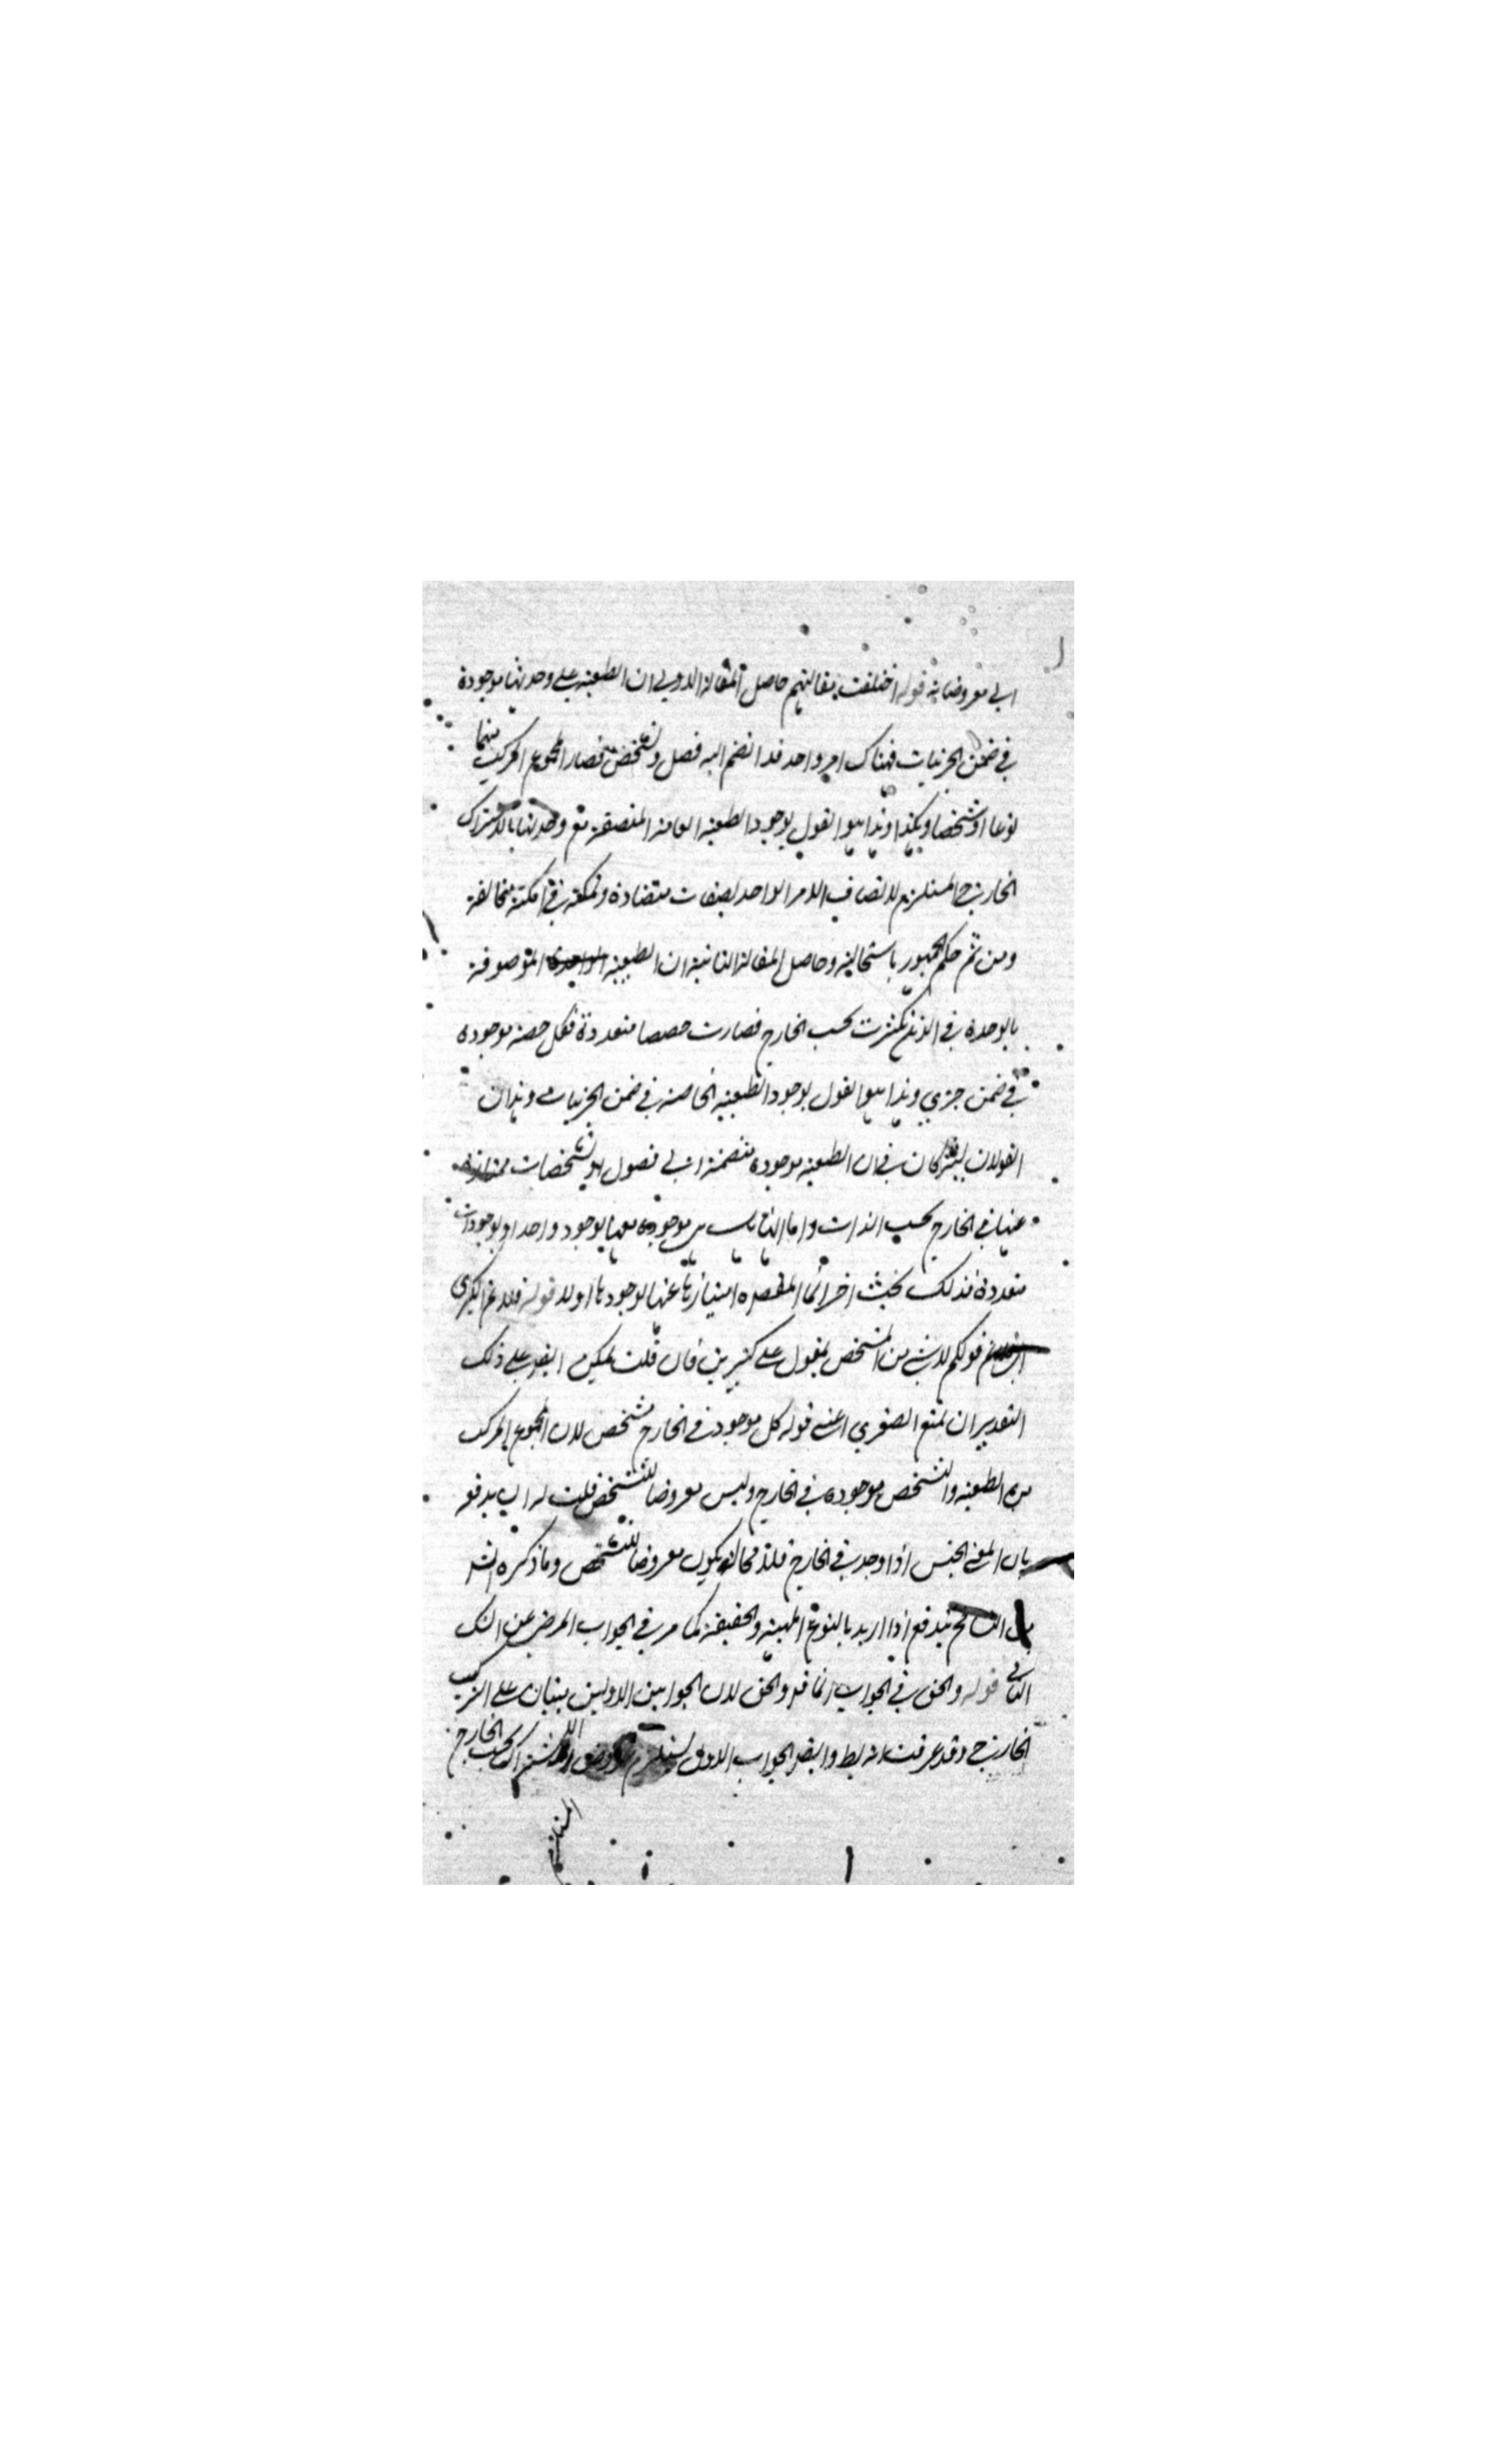 الى معروضاته قوله اختلفت مقالتهم حاصل المقالة الاولى ان الطبيعة على وحدتها موجودة
في ضمن الجزئيات فهناك امر واحد قد انضم اليه فصل وتشخص فصار المجموع المركب منهما
نوعا او شخصا وهكذا وهذا هو القول بوجود الطبيعة العامة المتصفة مع وحدتها بالاشتراك
الخارجي المستلزم لاتصاف الامر الواحد بصفات متضادة وتمكنه في امكنة متخالفة
ومن ثم حكم الجمهور باستحالته وحاصل المقالة الثانية ان الطبيعة الموصوفة
بالوحدة في الذهن تكثرت بحسب الخارج فصارت حصصا متعددة فكل حصة موجودة
في ضمن جزئي وهذا هو القول بوجود الطبيعة الخاصة في ضمن الجزئيات وهذان
القولان يشتركان في ان الطبيعة موجودة منضمة الى فصول او تشخصات ممتازة
عنها في الخارج بحسب الذات واما انها موجودة معها بوجود واحد او بوجودات
متعددة فذلك بحث اخر انما المقصود امتيازها عنها بوجودها اولا قوله فلا نم الكبرى
قولكم لا شي من المشخص بمقول على كثيرين فان قلت يمكن ايضا على ذلك
التقدير ان نمنع الصغرى اعني قوله كل موجود في الخارج مشخص لان المجموع المركب
من الطبيعة والتشخص موجود في الخارج وليس معروضا للتشخص قلت له ان يدفعه
بان المعنى الجنسي اذا وجد في الخارج فلا محالة يكون معروضا للتشخص وما ذكره الشـ
من التسامح يندفع اذا اريد بالنوع المهية والحقيقة كما مر في الجواب المرضي عن الشك
الثاني قوله والحق في الجواب انما قال والحق لان الجوابين الاولين يبتنيان على التركيب
الخارجي وقد عرفت انه بط وايضا الجواب الاول يستلزم عروض الاشتراك بحسب الخارج